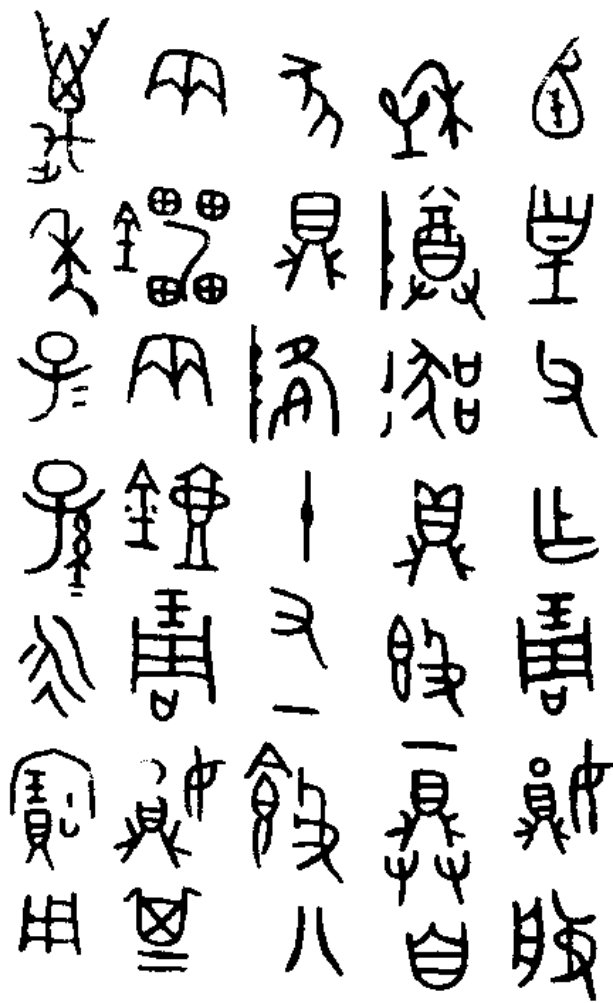 圅皇父乍周娟般
盉尊器鼎簋一具自
豕鼎降十又一簋八
兩鑘兩壺周娟其
萬年子＝孫＝永寶用